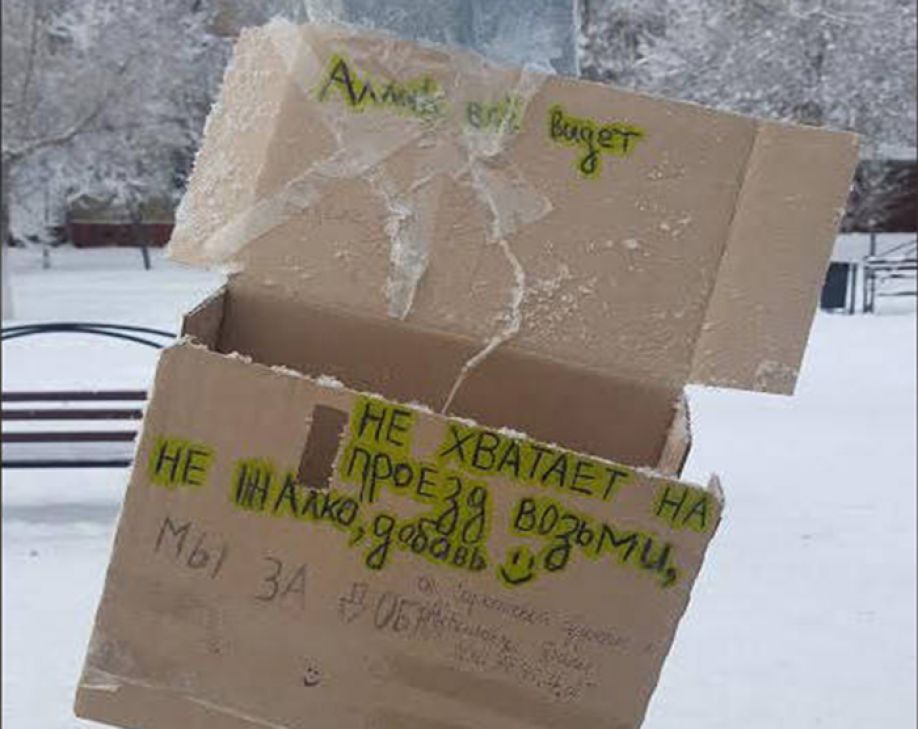 Аллах всё видет
НЕ ХВАТАЕТ НА
ПРОЕЗД ВОЗЬМИ,
НЕ ЖАЛКО, добавь
МЫ ЗА ДОБРО